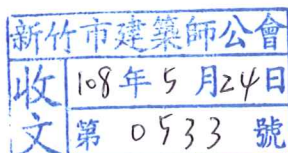 新竹市建築師公會
收文
108年5月24日
第 0533 號